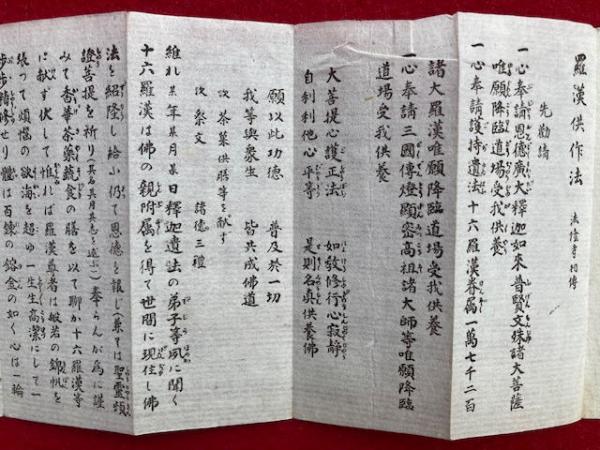 羅漢供作法 法隆寺相傳
先勸請
一心奉請恩德廣大釋迦如來普賢文殊諸大菩薩
唯願降臨道場受我供養
一心奉請護持遺法十六羅漢眷属一萬七千二百
諸大羅漢唯願降臨道場受我供養
一心奉請三國傳燈顯密高祖諸大師等唯願降臨
道場受我供養
大菩提心護正法 如敎修行心寂静
自利利他心平等 是則名真供養佛
願以此功德 普及於一切
我等與衆生 皆共成佛道
次茶菓供膳等を献ず
次祭文 諸德三禮
維れ年月日釋迦遺法の弟子等夙に聞く
十六羅漢は佛の親附属を得て世間に現住し佛
法を紹隆し給ふ仍て恩德を報じ(兼ては聖靈頓
證菩提を祈り(
みて香華茶藥蔬食の膳を以て聊か十六羅漢等
に献ず伏して惟れば羅漢尊者は般若の錦帆を
張つて煩惱の欲海を超ゆ一生生高潔にして一
歩歩精修せり體は百錬の鎔金の如く心は一輪